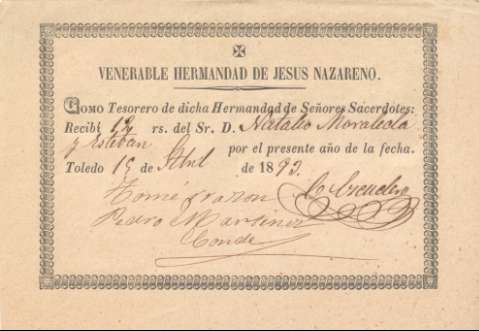 VENERABLE HERMANDAD DE JESUS NAZARENO.
Como Tesorero de dicha Hermandad de Señores Sacerdotes:
Recibí 12 rs. del Sr. D. Natalio Moraleda
y Esteban por el presente año de la fecha.
Toledo 15 de Stbre de 1892.
Tomé razon
Pedro Martinez Escudero
Conde